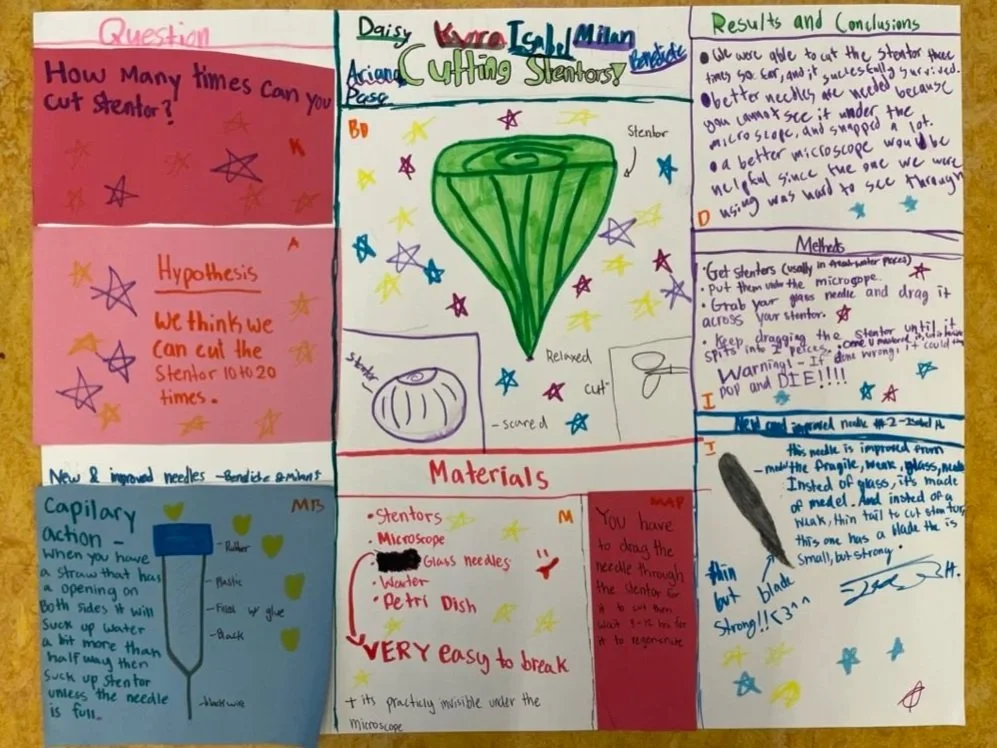 Question
How Many times Can you
cut Stentor?
K
A
Hypothesis
We think we
Can cut the
Stentor 10 to 20
times.
New & improved needles - Bendicte & Milan
MB
Capilary
action -
When you have
a straw that has
a opening on
Both sides it will
Suck up water
a bit more than
half way then
Suck up stentor
unless the needle
is full.
- Rubber
- Plastic
- Filled w/ glue
- Black
- black wire
Daisy Kyra Isabel Milan
Ariana Cutting Stentors! Benedicte
Pase
BD
Stentor
Relaxed
stentor
- scared
cut
Materials
M
• Stentors
• Microscope
Glass needles
• Water
• Petri Dish
VERY easy to break
+ its practicly invisible under the
microscope
MAP
You have
to drag the
needle through
the stentor for
it to cut then
wait hrs for
it to regenerate
Results and Conclusions
• We were able to cut the stentor three
times so far, and it sucessfully survived.
• better needles are needed because
you cannot see it under the
microscope, and snapped a lot.
• a better microscope would be
helpful since the one we were
using was hard to see through
D
Methods
• Get stenters (usually in water)
• Put them under the microgope.
• Grab your glass needle and drag it
across your stentor.
• Keep dragging the stentor until it
spits into 2 peices.
Warning! - If done wrong, it could
pop and DIE!!!!
I
New and improved needle #2 - Isabel H.
I
this needle is improved from
the fragile, weak, glass, needle
Insted of glass, it's made
of medel. And insted of a
weak, thin tail to cut stentor,
this one has a blade the is
small, but strong.
H.
thin
but blade
strong!! <3 ^^